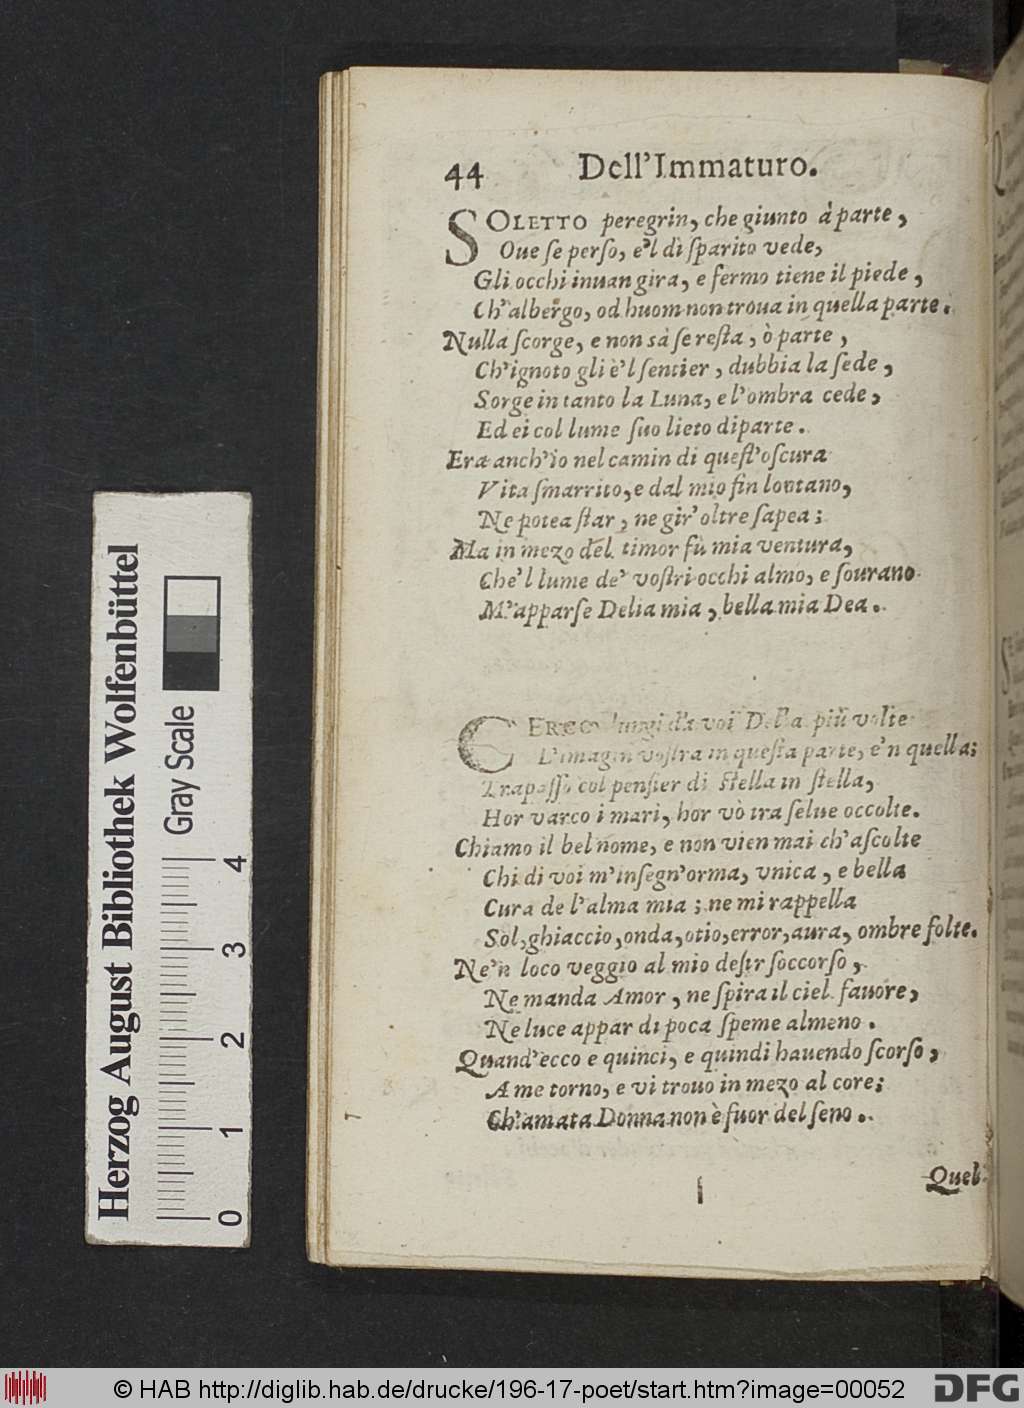 44 Dell'Immaturo.
SOLETTO peregrin, che giunto à parte,
Oue se perso, e'l dì sparito vede,
Gli occhi inuan gira, e fermo tiene il piede,
Ch'albergo, od huom non troua in quella parte.
Nulla scorge, e non sà se resta, ò parte,
Ch'ignoto gli è'l sentier, dubbia la sede,
Sorge in tanto la Luna, e l'ombra cede,
Ed ei col lume suo lieto diparte.
Era anch'io nel camin di quest'oscura
Vita smarrito, e dal mio fin lontano,
Ne potea star, ne gir' oltre sapea;
Ma in mezo del timor fù mia ventura,
Che'l lume de' vostri occhi almo, e sourano
M'apparse Delia mia, bella mia Dea.
CERCO lungi da voi Delia più volte
L'imagin vostra in questa parte, e'n quella;
Trapasso col pensier di stella in stella,
Hor varco i mari, hor vò tra selue occolte.
Chiamo il bel nome, e non vien mai ch'ascolte
Chi di voi m'insegn'orma, vnica, e bella
Cura de l'alma mia; ne mi rappella
Sol, ghiaccio, onda, otio, error, aura, ombre folte.
Ne'n loco veggio al mio desir soccorso,
Ne manda Amor, ne spira il ciel fauore,
Ne luce appar di poca speme almeno.
Quand'ecco e quinci, e quindi hauendo scorso,
A me torno, e vi trouo in mezo al core;
Ch'amata Donna non è fuor del seno.
Quel
Herzog August Bibliothek Wolfenbüttel
Gray Scale
0 1 2 3 4
© HAB http://diglib.hab.de/drucke/196-17-poet/start.htm?image=00052
DFG